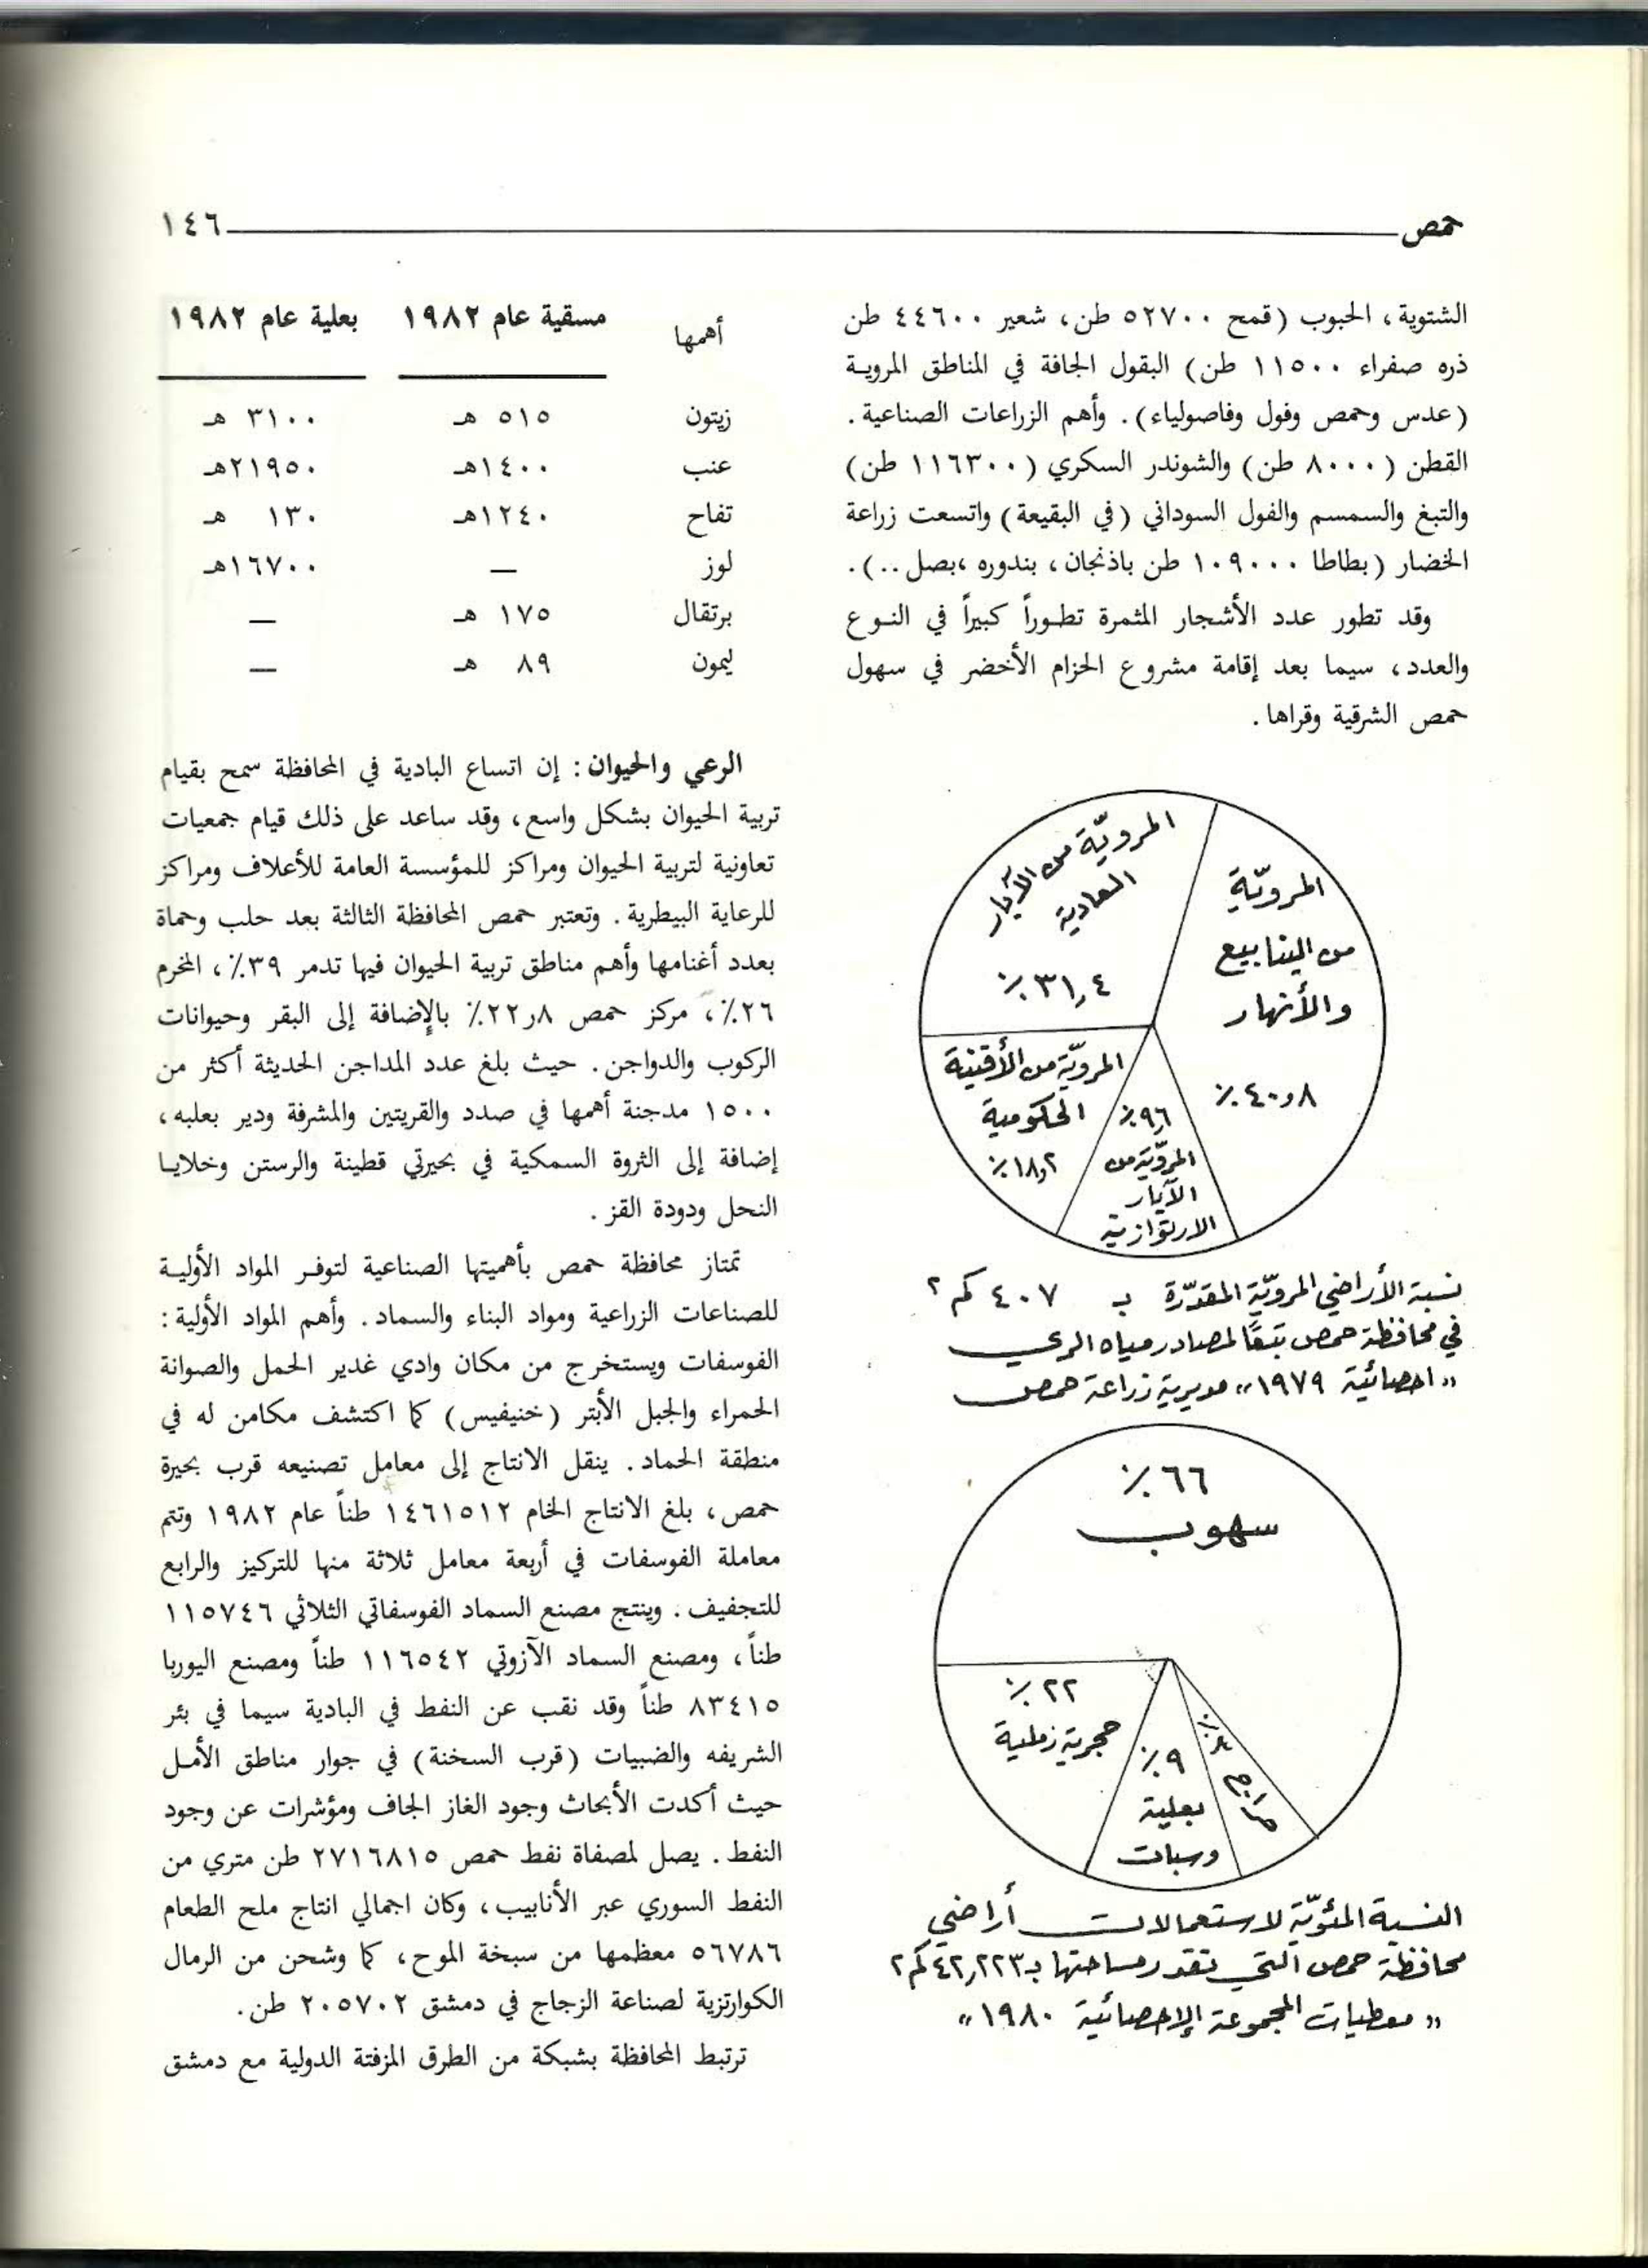 حمص
١٤٦
الشتوية، الحبوب (قمح ٥٢٧٠٠ طن، شعير ٤٤٦٠٠ طن
ذره صفراء ١١٥٠٠ طن) البقول الجافة في المناطق المروية
(عدس وحمص وفول وفاصولياء). وأهم الزراعات الصناعية.
القطن (٨٠٠٠ طن) والشوندر السكري (١١٦٣٠٠ طن)
والتبغ والسمسم والفول السوداني (في البقيعة) واتسعت زراعة
الخضار (بطاطا ١٠٩٠٠٠ طن باذنجان، بندوره ،بصل ..).
وقد تطور عدد الأشجار المثمرة تطوراً كبيراً في النوع
والعدد، سيما بعد إقامة مشروع الحزام الأخضر في سهول
حمص الشرقية وقراها.
المرويّة
من الينابيع
والأنهار
٤٠٫٨٪
المرويّة من الآبار
العادية
٣١٫٤٪
المرويّة من الأقنية
الحكومية
١٨٫٢٪
٩٫٦٪
المرويّة من
الآبار
الارتوازية
نسبة الأراضي المرويّة المقدّرة بـ ٤٠٧ كم٢
في محافظة حمص تبعًا لمصادر مياه الري
«احصائية ١٩٧٩» مديرية زراعة حمص
٦٦٪
سهوب
٢٢٪
حجرية رملية
٩٪
بعلية
وسبات
٪
حراج
النسبة المئويّة لاستعمالات أراضي
محافظة حمص التي تقدر مساحتها بـ ٤٢٫٢٢٣ كم٢
«معطيات المجموعة الإحصائية ١٩٨٠»
أهمها مسقية عام ١٩٨٢ بعلية عام ١٩٨٢
زيتون ٥١٥ هـ ٣١٠٠ هـ
عنب ١٤٠٠هـ ٢١٩٥٠هـ
تفاح ١٢٤٠هـ ١٣٠ هـ
لوز — ١٦٧٠٠هـ
برتقال ١٧٥ هـ —
ليمون ٨٩ هـ —
الرعي والحيوان: إن اتساع البادية في المحافظة سمح بقيام
تربية الحيوان بشكل واسع، وقد ساعد على ذلك قيام جمعيات
تعاونية لتربية الحيوان ومراكز للمؤسسة العامة للأعلاف ومراكز
للرعاية البيطرية. وتعتبر حمص المحافظة الثالثة بعد حلب وحماة
بعدد أغنامها وأهم مناطق تربية الحيوان فيها تدمر ٣٩٪، المخرم
٢٦٪، مركز حمص ٨ر٢٢٪ بالإضافة إلى البقر وحيوانات
الركوب والدواجن. حيث بلغ عدد المداجن الحديثة أكثر من
١٥٠٠ مدجنة أهمها في صدد والقريتين والمشرفة ودير بعلبه،
إضافة إلى الثروة السمكية في بحيرتي قطينة والرستن وخلايا
النحل ودودة القز.
تمتاز محافظة حمص بأهميتها الصناعية لتوفر المواد الأولية
للصناعات الزراعية ومواد البناء والسماد. وأهم المواد الأولية:
الفوسفات ويستخرج من مكان وادي غدير الحمل والصوانة
الحمراء والجبل الأبتر (خنيفيس) كما اكتشف مكامن له في
منطقة الحماد. ينقل الانتاج إلى معامل تصنيعه قرب بحيرة
حمص، بلغ الانتاج الخام ١٤٦١٥١٢ طناً عام ١٩٨٢ وتتم
معاملة الفوسفات في أربعة معامل ثلاثة منها للتركيز والرابع
للتجفيف. وينتج مصنع السماد الفوسفاتي الثلاثي ١١٥٧٤٦
طناً، ومصنع السماد الآزوتي ١١٦٥٤٢ طناً ومصنع اليوريا
٨٣٤١٥ طناً وقد نقب عن النفط في البادية سيما في بئر
الشريفه والضبيات (قرب السخنة) في جوار مناطق الأمل
حيث أكدت الأبحاث وجود الغاز الجاف ومؤشرات عن وجود
النفط. يصل لمصفاة نفط حمص ٢٧١٦٨١٥ طن متري من
النفط السوري عبر الأنابيب، وكان اجمالي انتاج ملح الطعام
٥٦٧٨٦ معظمها من سبخة الموح، كما وشحن من الرمال
الكوارتزية لصناعة الزجاج في دمشق ٢٠٥٧٠٢ طن.
ترتبط المحافظة بشبكة من الطرق المزفتة الدولية مع دمشق